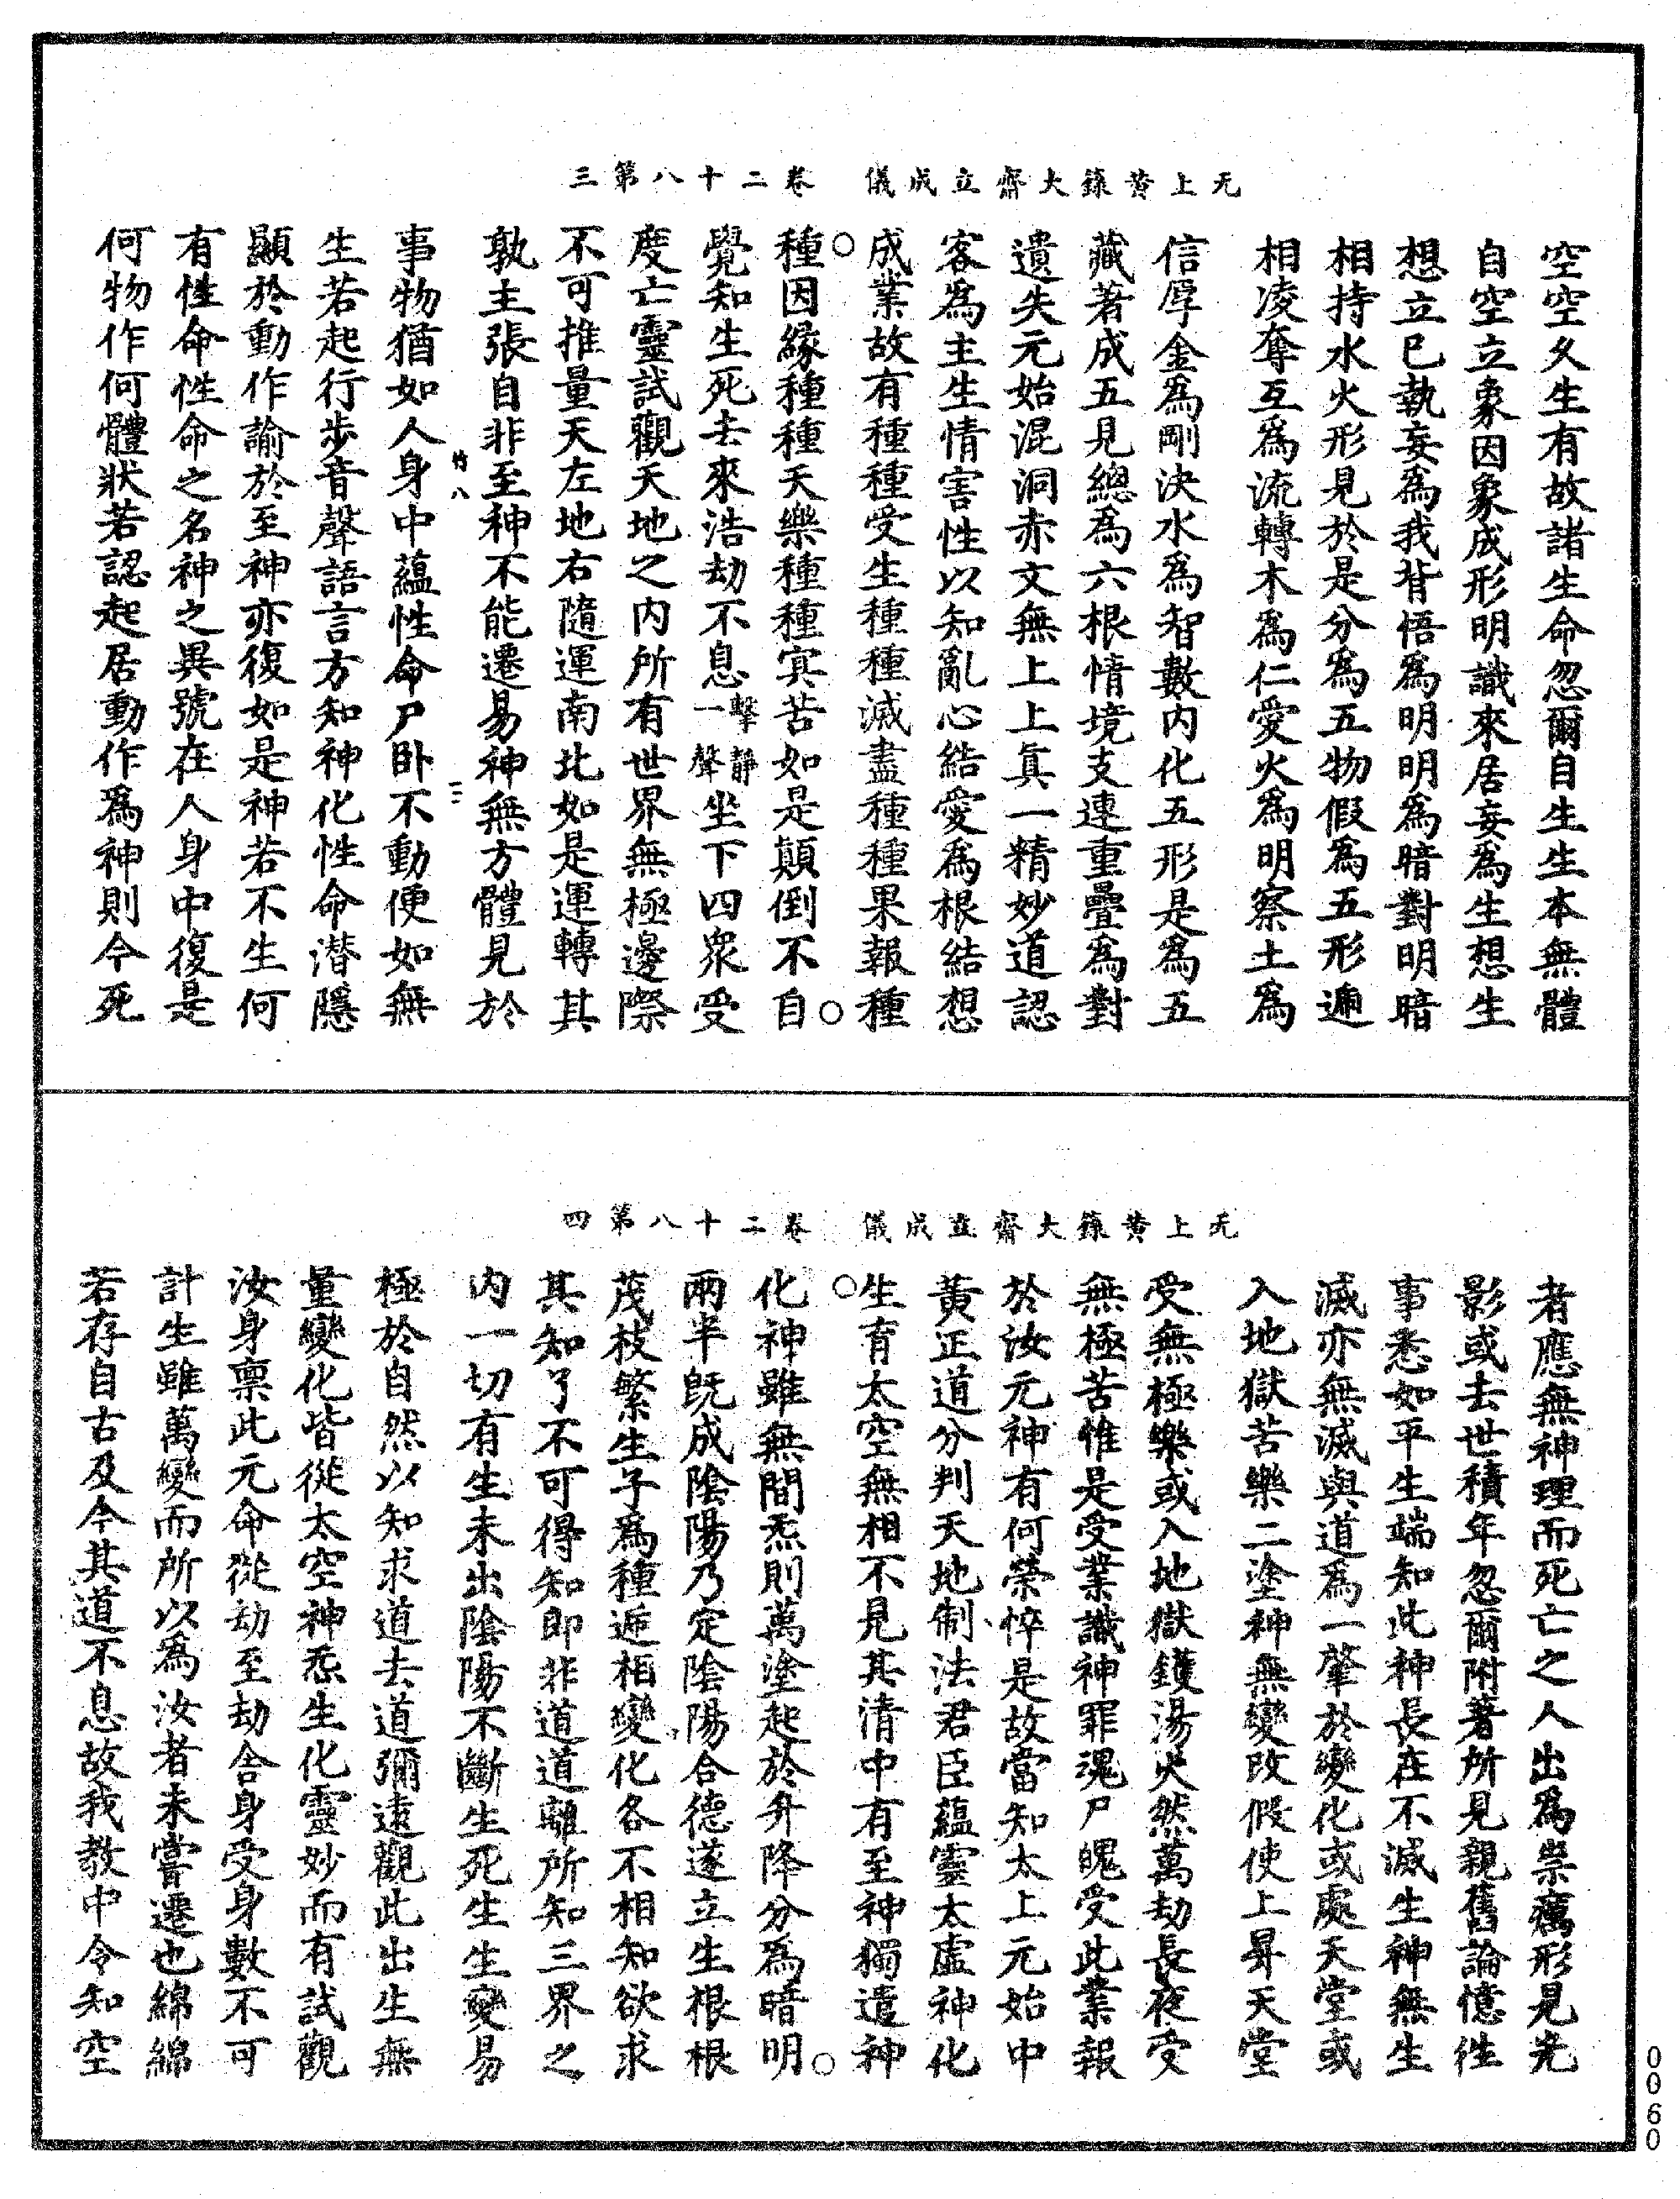 无上黃籙大齋立成儀　卷二十八第三
空空久生有故諸生命忽爾自生生本無體
自空立象因象成形明識來居妄爲生想生
想立已執妄爲我背悟爲明明爲暗對明暗
相持水火形見於是分爲五物假爲五形遞
相凌奪互爲流轉木爲仁愛火爲明察土爲
信厚金爲剛決水爲智數内化五形是爲五
藏著成五見總爲六根情境支連重疊爲對
遺失元始混洞赤文無上上真一精妙道認
客爲主生情害性以知亂心結愛爲根結想
成業故有種種受生種種滅盡種種果報種
種因緣種種天樂種種冥苦如是顛倒不自
覺知生死去來浩劫不息擊靜一聲坐下四衆受
度亡靈試觀天地之内所有世界無極邊際
不可推量天左地右隨運南北如是運轉其
孰主張自非至神不能遷易神無方體見於
竹八　二二
事物猶如人身中蘊性命尸卧不動便如無
生若起行步音聲語言方知神化性命潜隱
顯於動作諭於至神亦復如是神若不生何
有性命性命之名神之異號在人身中復是
何物作何體狀若認起居動作爲神則今死
无上黃籙大齋立成儀　卷二十八第四
者應無神理而死亡之人出爲祟癘形見光
影或去世積年忽爾附著所見親舊論憶徃
事悉如平生端知此神長在不滅生神無生
滅亦無滅與道爲一肇於變化或處天堂或
入地獄苦樂二塗神無變改假使上昇天堂
受無極樂或入地獄鑊湯火然萬劫長夜受
無極苦惟是受業識神罪魂尸魄受此業報
於汝元神有何榮悴是故當知太上元始中
黃正道分判天地制法君臣蘊靈太虛神化
生育太空無相不見其清中有至神獨遣神
化神雖無間炁則萬塗起於升降分爲暗明
兩半旣成陰陽乃定陰陽合德遂立生根根
茂枝繁生子爲種逅相變化各不相知欲求
其知了不可得知即非道道離所知三界之
内一切有生未出陰陽不斷生死生生變易
極於自然以知求道去道彌遠觀此出生無
量變化皆從太空神炁生化靈妙而有試觀
汝身稟此元命從劫至劫舍身受身數不可
計生雖萬變而所以爲汝者未嘗遷也綿綿
若存自古及今其道不息故我教中令知空
0060